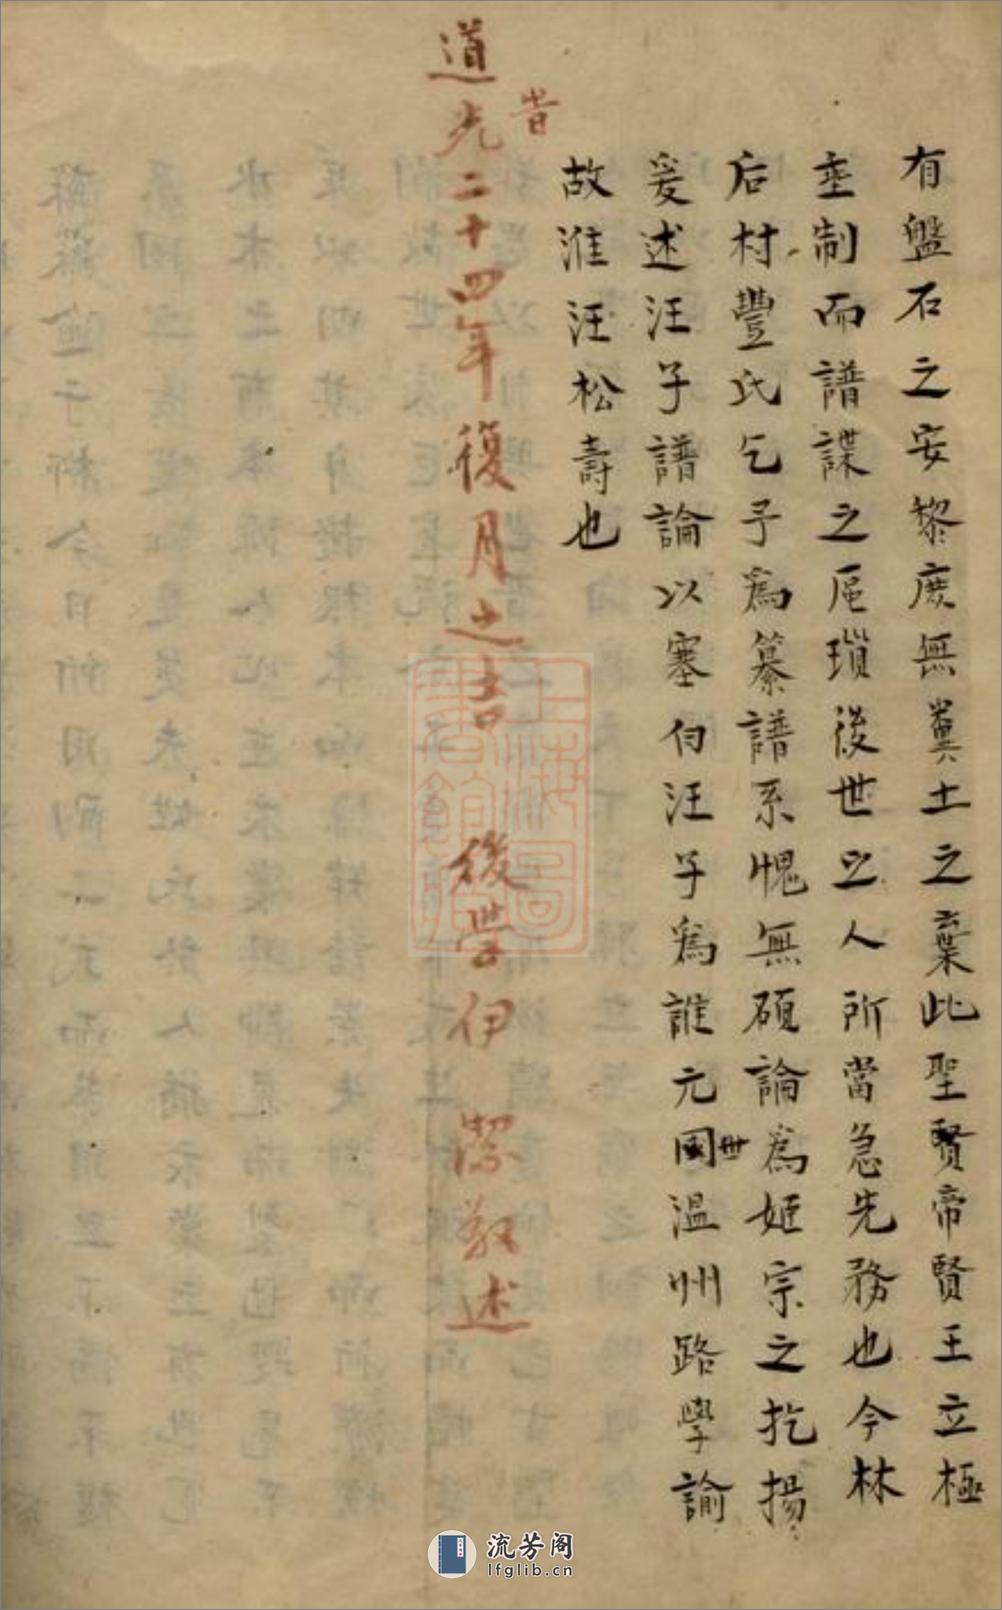 有盤石之安黎庶無糞土之棄此聖賢帝賢王立極
垂制而譜諜之瑣後世之人所當急先務也今林
后村豐氏乞予為纂譜系愧無碩論為姬宗之扢揚
爰述汪子譜論以塞白汪子為誰元國世溫州路學諭
故淮汪松壽也
旹
道光二十四年復月之吉 後學伊 潔敬述
上海圖書館藏
流芳阁
lfglib.cn